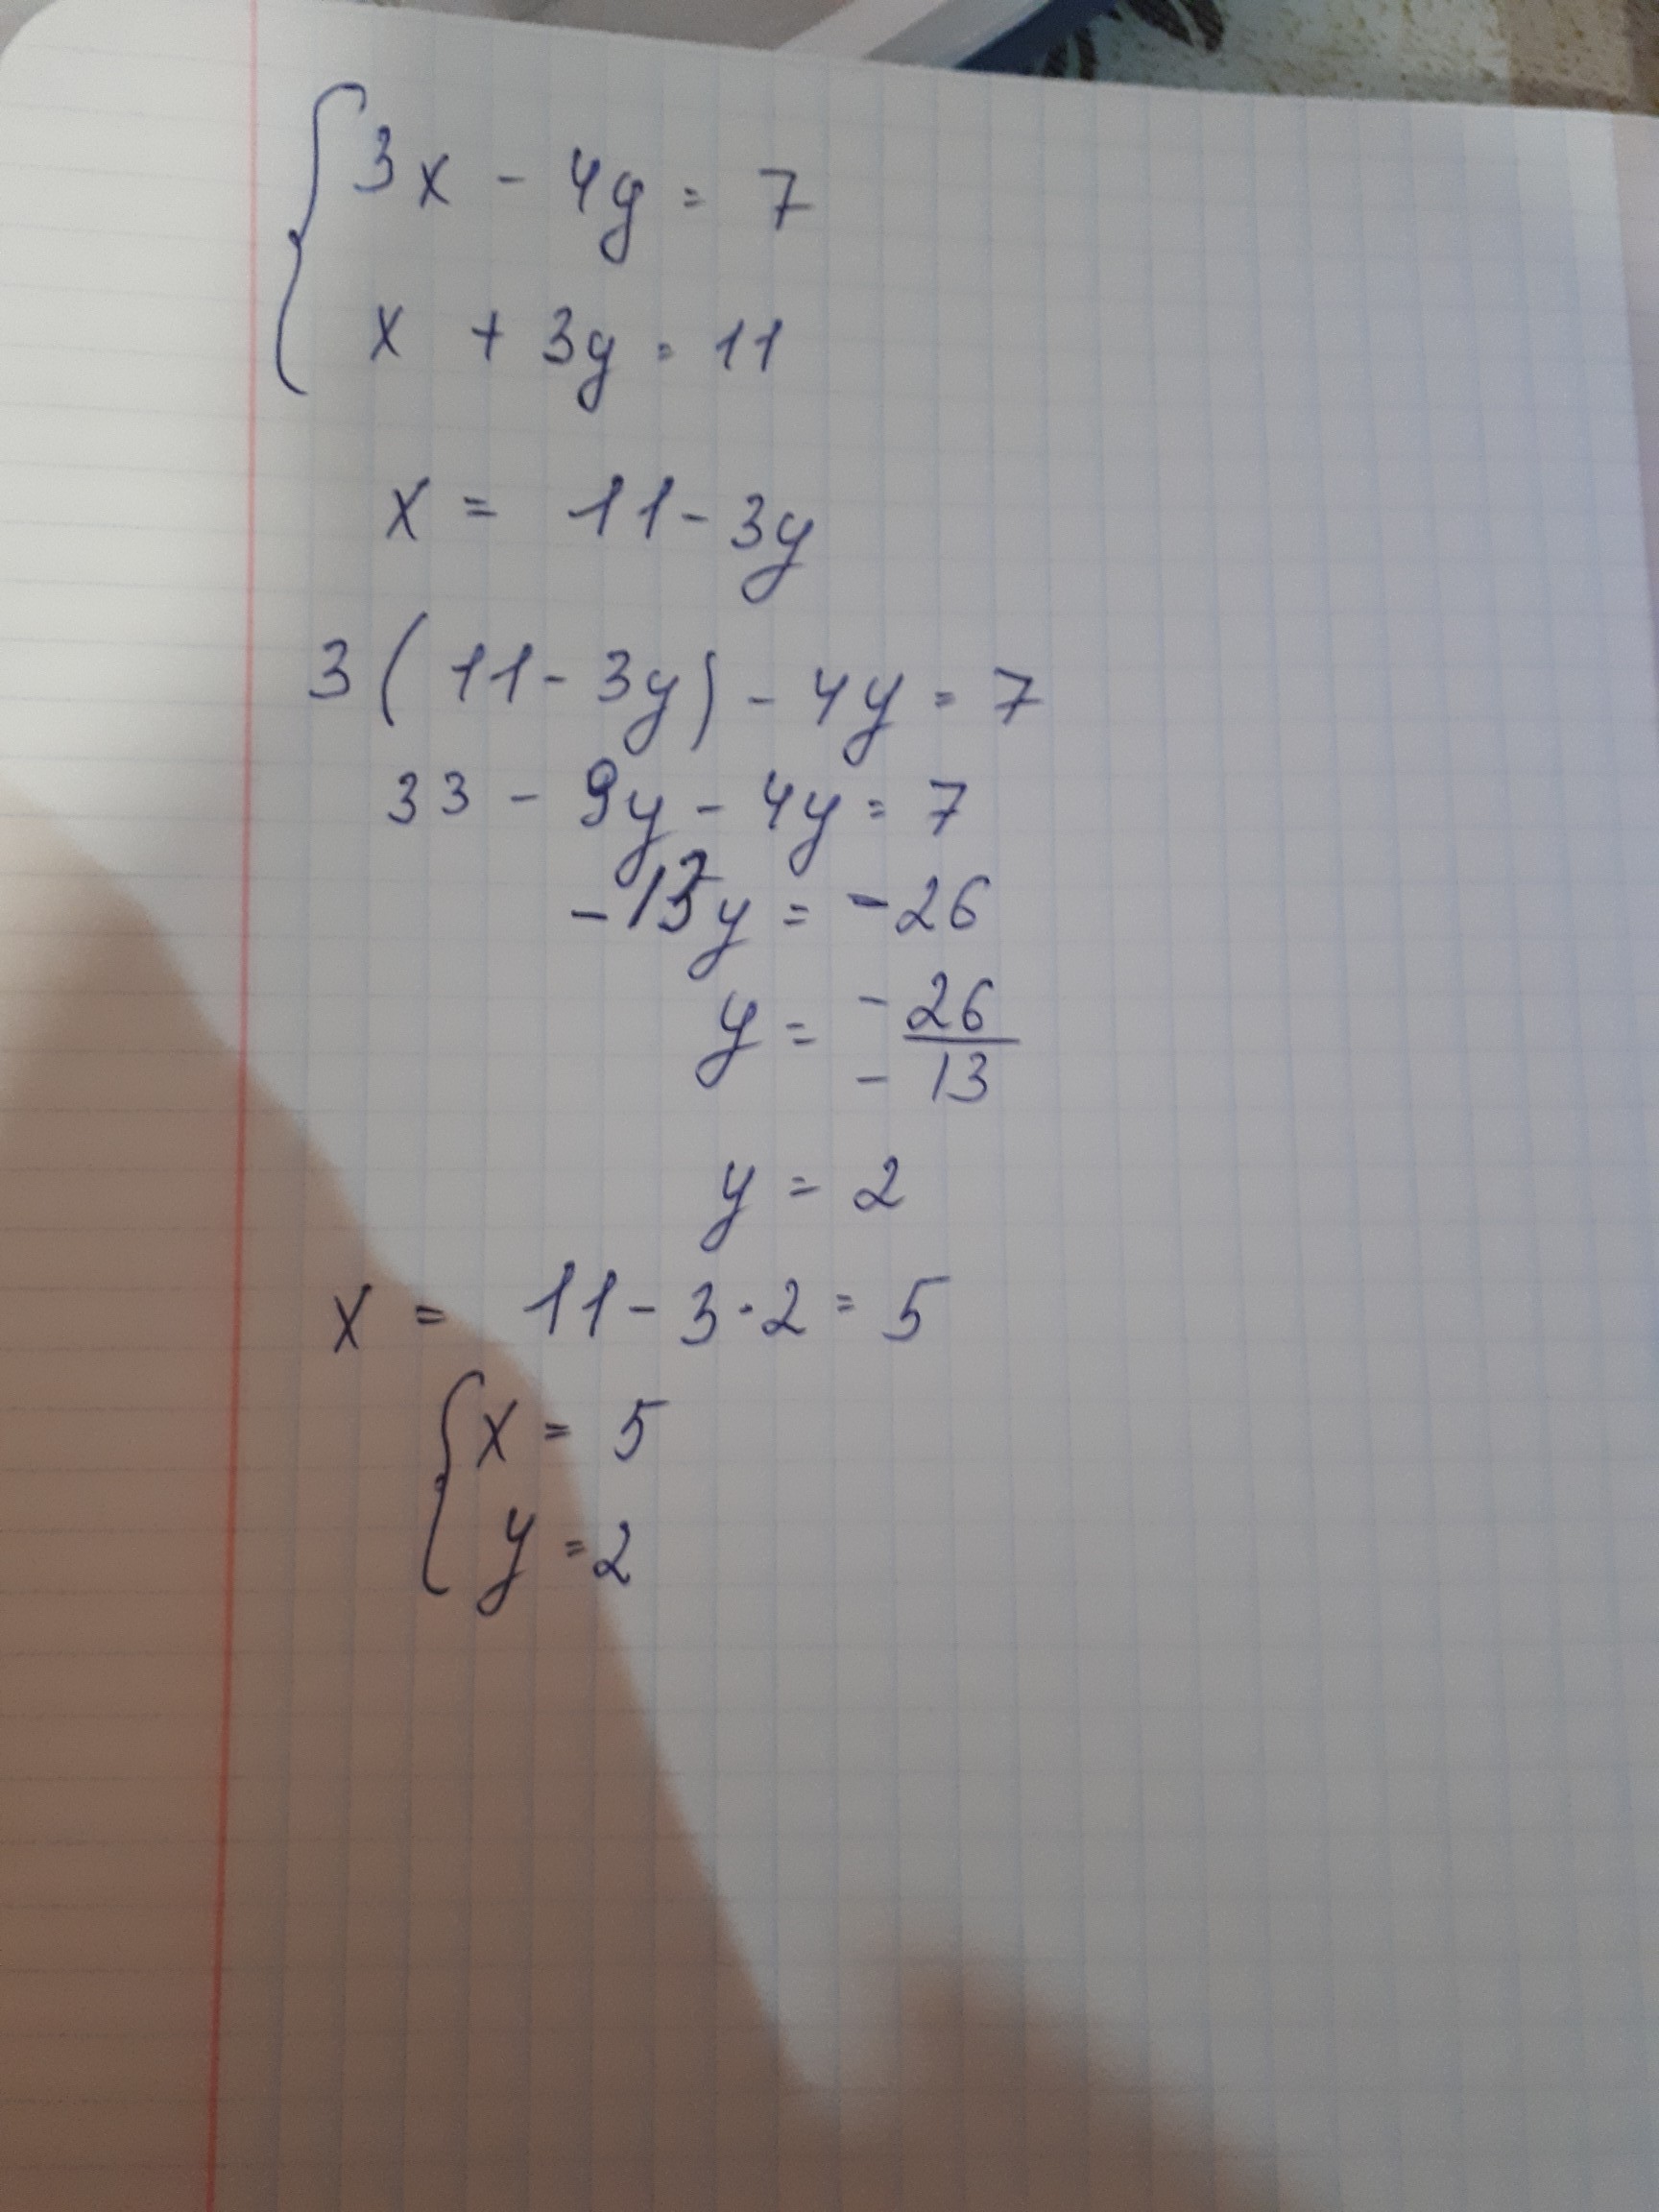 { 3x - 4y = 7
x + 3y = 11
x = 11 - 3y
3(11 - 3y) - 4y = 7
33 - 9y - 4y = 7
-13y = -26
y = -26/-13
y = 2
x = 11 - 3·2 = 5
{ x = 5
y = 2